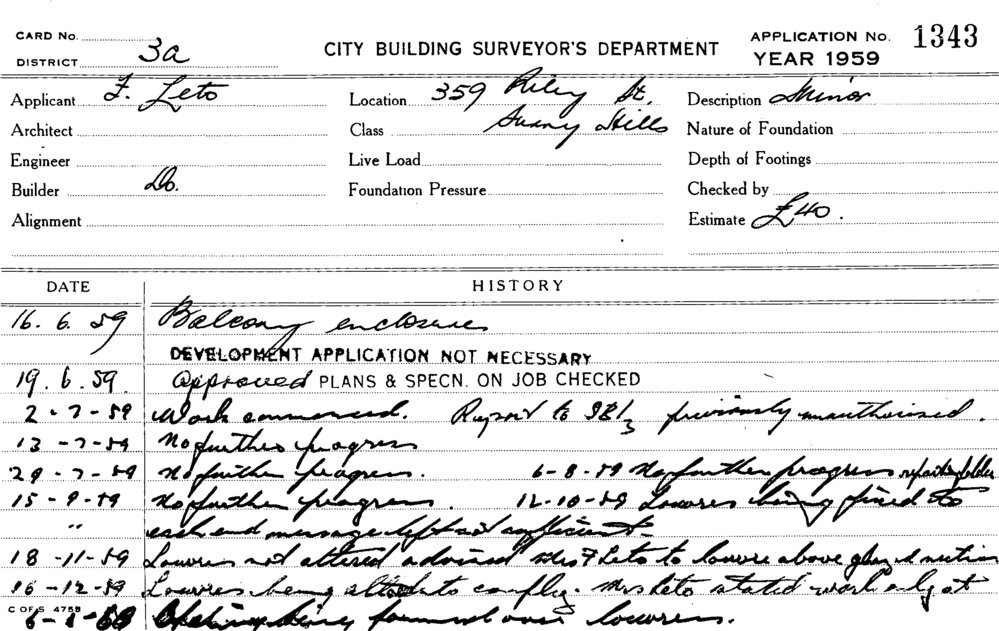 CARD No.
DISTRICT 3a
CITY BUILDING SURVEYOR'S DEPARTMENT
APPLICATION No. 1343
YEAR 1959
Applicant F. Leto
Location 359 Riley St.
Description Minor
Architect
Class Surry Hills
Nature of Foundation
Engineer
Live Load
Depth of Footings
Builder Do.
Foundation Pressure
Checked by
Alignment
Estimate £40.
DATE HISTORY
16. 6. 59 Balcony enclosure
DEVELOPMENT APPLICATION NOT NECESSARY
19. 6. 59. Approved PLANS & SPECN. ON JOB CHECKED
2-7-59 Work commenced. Report to previously unauthorised.
13-7-59 No further progress
29-7-59 No further progress. 6-8-59 No further progress folder
15-9-59 No further progress. 12-10-59 Louvres being fixed to
" each end message left not sufficient
18-11-59 Louvres not altered advised Mrs F Leto to louvre above glazed section
16-12-59 Louvres being altered to comply. Mrs Leto stated work only at
C OF S 4755
being formed over louvres.